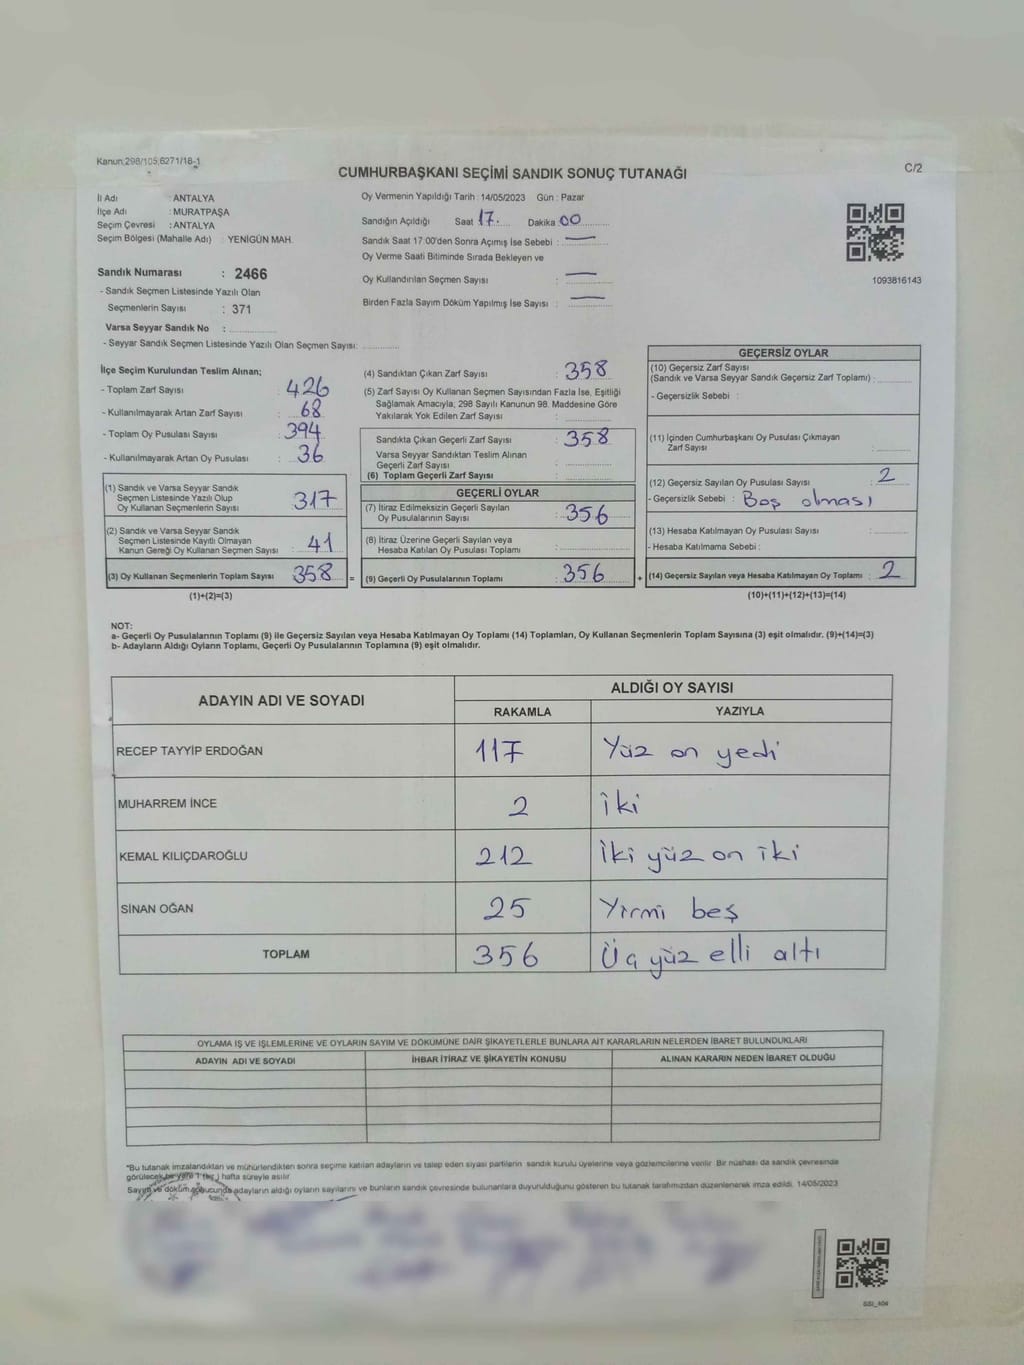 Kanun;298/105,6271/18-1
CUMHURBAŞKANI SEÇİMİ SANDIK SONUÇ TUTANAĞI
C/2
İl Adı : ANTALYA
İlçe Adı : MURATPAŞA
Seçim Çevresi : ANTALYA
Seçim Bölgesi (Mahalle Adı) : YENİGÜN MAH.
Oy Vermenin Yapıldığı Tarih : 14/05/2023 Gün : Pazar
Sandığın Açıldığı Saat 17. Dakika 00
Sandık Saat 17:00'den Sonra Açımış İse Sebebi : —
Oy Verme Saati Bitiminde Sırada Bekleyen ve
Oy Kullandırılan Seçmen Sayısı : —
Birden Fazla Sayım Döküm Yapılmış İse Sayısı : —
1093816143
Sandık Numarası : 2466
- Sandık Seçmen Listesinde Yazılı Olan
Seçmenlerin Sayısı : 371
Varsa Seyyar Sandık No :
- Seyyar Sandık Seçmen Listesinde Yazılı Olan Seçmen Sayısı:
İlçe Seçim Kurulundan Teslim Alınan;
- Toplam Zarf Sayısı : 426
- Kullanılmayarak Artan Zarf Sayısı : 68
- Toplam Oy Pusulası Sayısı : 394
- Kullanılmayarak Artan Oy Pusulası : 36
(1) Sandık ve Varsa Seyyar Sandık
Seçmen Listesinde Yazılı Olup
Oy Kullanan Seçmenlerin Sayısı : 317
(2) Sandık ve Varsa Seyyar Sandık
Seçmen Listesinde Kayıtlı Olmayan
Kanun Gereği Oy Kullanan Seçmen Sayısı : 41
(3) Oy Kullanan Seçmenlerin Toplam Sayısı : 358 =
(1)+(2)=(3)
(4) Sandıktan Çıkan Zarf Sayısı : 358
(5) Zarf Sayısı Oy Kullanan Seçmen Sayısından Fazla İse, Eşitliği
Sağlamak Amacıyla; 298 Sayılı Kanunun 98. Maddesine Göre
Yakılarak Yok Edilen Zarf Sayısı :
Sandıkta Çıkan Geçerli Zarf Sayısı : 358
Varsa Seyyar Sandıktan Teslim Alınan
Geçerli Zarf Sayısı :
(6) Toplam Geçerli Zarf Sayısı :
GEÇERLİ OYLAR
(7) İtiraz Edilmeksizin Geçerli Sayılan
Oy Pusulalarının Sayısı : 356
(8) İtiraz Üzerine Geçerli Sayılan veya
Hesaba Katılan Oy Pusulası Toplamı :
(9) Geçerli Oy Pusulalarının Toplamı : 356 +
GEÇERSİZ OYLAR
(10) Geçersiz Zarf Sayısı
(Sandık ve Varsa Seyyar Sandık Geçersiz Zarf Toplamı) :
- Geçersizlik Sebebi :
(11) İçinden Cumhurbaşkanı Oy Pusulası Çıkmayan
Zarf Sayısı :
(12) Geçersiz Sayılan Oy Pusulası Sayısı : 2
- Geçersizlik Sebebi : Boş olması
(13) Hesaba Katılmayan Oy Pusulası Sayısı :
- Hesaba Katılmama Sebebi :
(14) Geçersiz Sayılan veya Hesaba Katılmayan Oy Toplamı : 2
(10)+(11)+(12)+(13)=(14)
NOT:
a- Geçerli Oy Pusulalarının Toplamı (9) ile Geçersiz Sayılan veya Hesaba Katılmayan Oy Toplamı (14) Toplamları, Oy Kullanan Seçmenlerin Toplam Sayısına (3) eşit olmalıdır. (9)+(14)=(3)
b- Adayların Aldığı Oyların Toplamı, Geçerli Oy Pusulalarının Toplamına (9) eşit olmalıdır.
ADAYIN ADI VE SOYADI
ALDIĞI OY SAYISI
RAKAMLA YAZIYLA
RECEP TAYYİP ERDOĞAN 117 Yüz on yedi
MUHARREM İNCE 2 İki
KEMAL KILIÇDAROĞLU 212 İki yüz on iki
SİNAN OĞAN 25 Yirmi beş
TOPLAM 356 Üç yüz elli altı
OYLAMA İŞ VE İŞLEMLERİNE VE OYLARIN SAYIM VE DÖKÜMÜNE DAİR ŞİKAYETLERLE BUNLARA AİT KARARLARIN NELERDEN İBARET BULUNDUKLARI
ADAYIN ADI VE SOYADI İHBAR İTİRAZ VE ŞİKAYETİN KONUSU ALINAN KARARIN NEDEN İBARET OLDUĞU
*Bu tutanak imzalandıktan ve mühürlendikten sonra seçime katılan adayların ve talep eden siyasi partilerin sandık kurulu üyelerine veya gözlemcilerine verilir. Bir nüshası da sandık çevresinde
görülecek bir yere 1 (bir) hafta süreyle asılır.
Sayım ve döküm sonucunda adayların aldığı oyların sayılarını ve bunların sandık çevresinde bulunanlara duyurulduğunu gösteren bu tutanak tarafımızdan düzenlenerek imza edildi. 14/05/2023